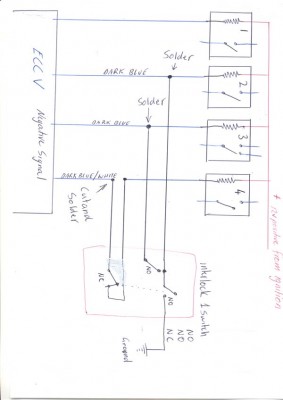 ECC V Negative Signal
1
DARK BLUE
Solder
2
DARK BLUE
Solder
3
DARK BLUE/WHITE
Cut and Solder
4
+ from ignition
interlock 1 switch
NO
NO
NC
NC
NO
NO
Ground